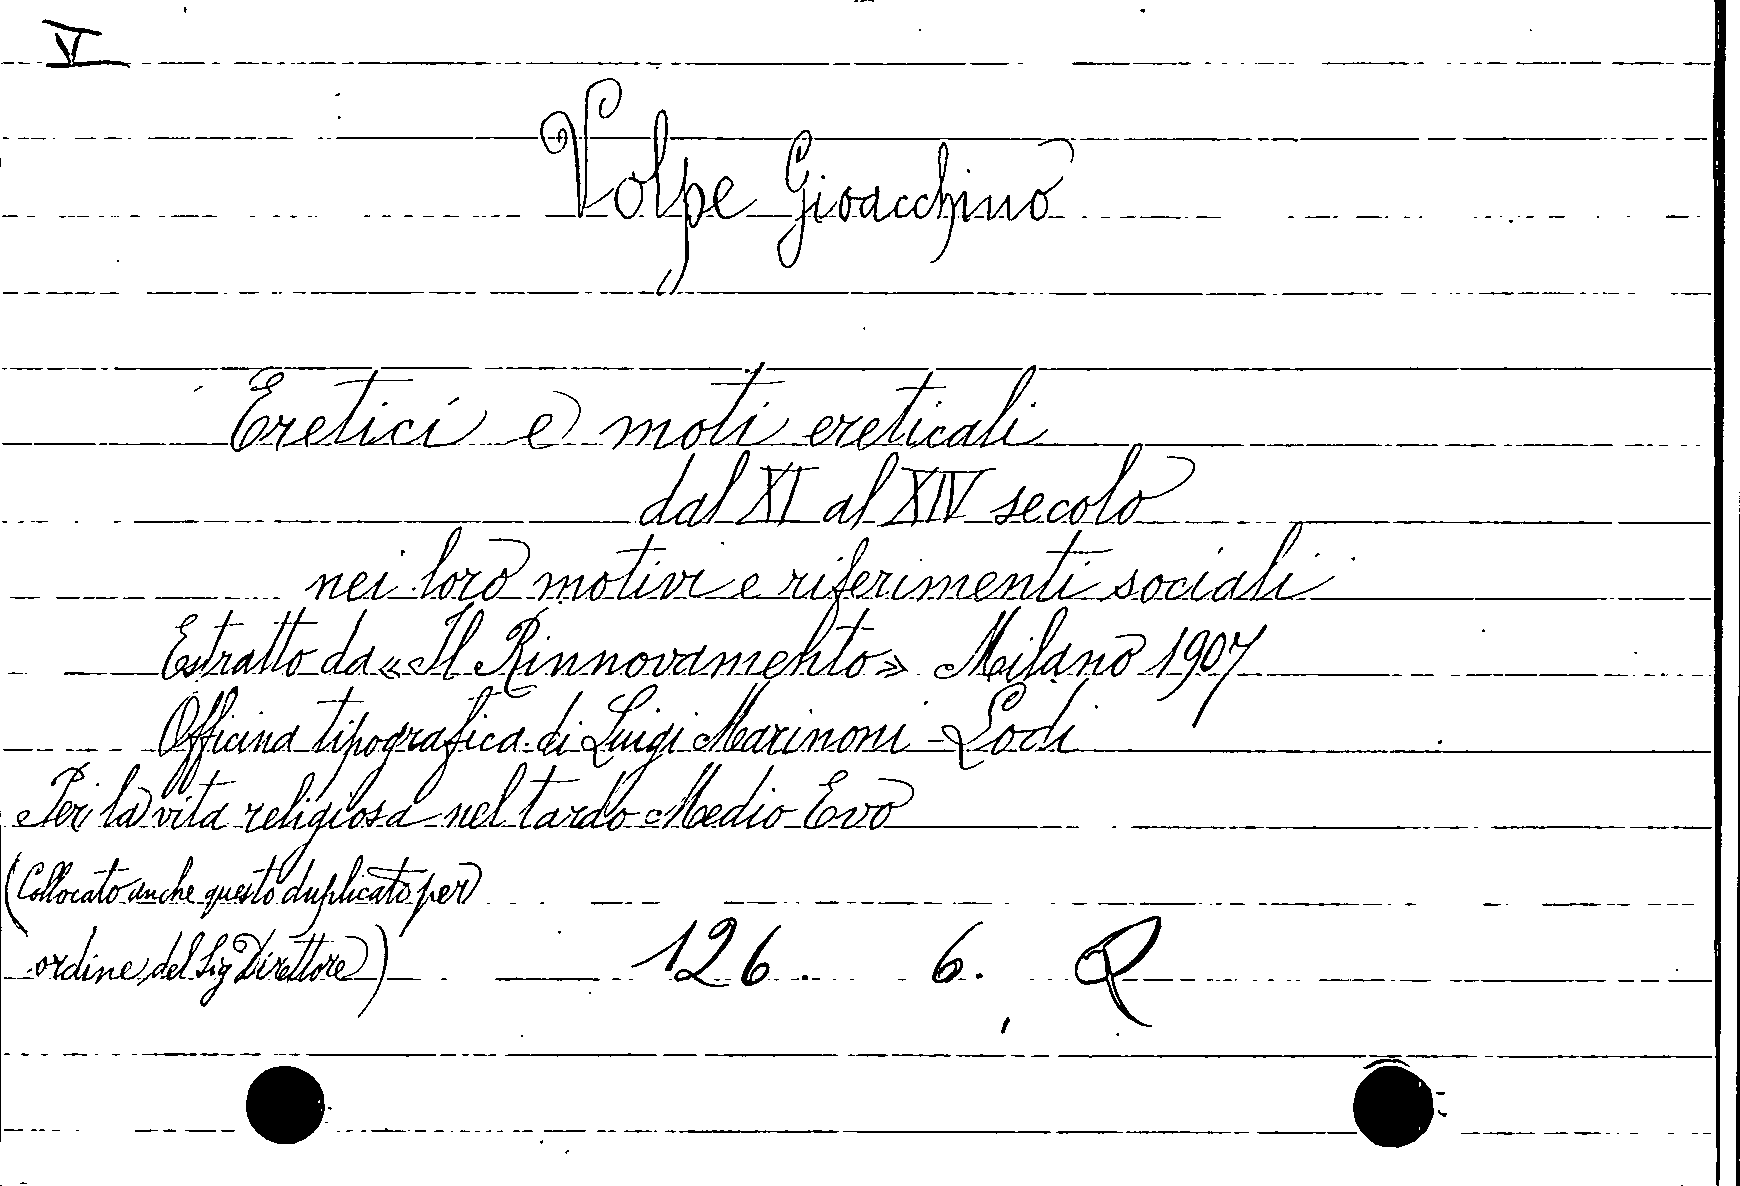 V
Volpe Gioacchino
Eretici e moti ereticali
dal XI al XIV secolo
nei loro motivi e riferimenti sociali
Estratto da «Il Rinnovamento» Milano 1907
Officina tipografica di Luigi Marinoni - Lodi
Per la vita religiosa nel tardo Medio Evo
(Collocato anche questo duplicato per
ordine del Sig Direttore) 126. 6. Q